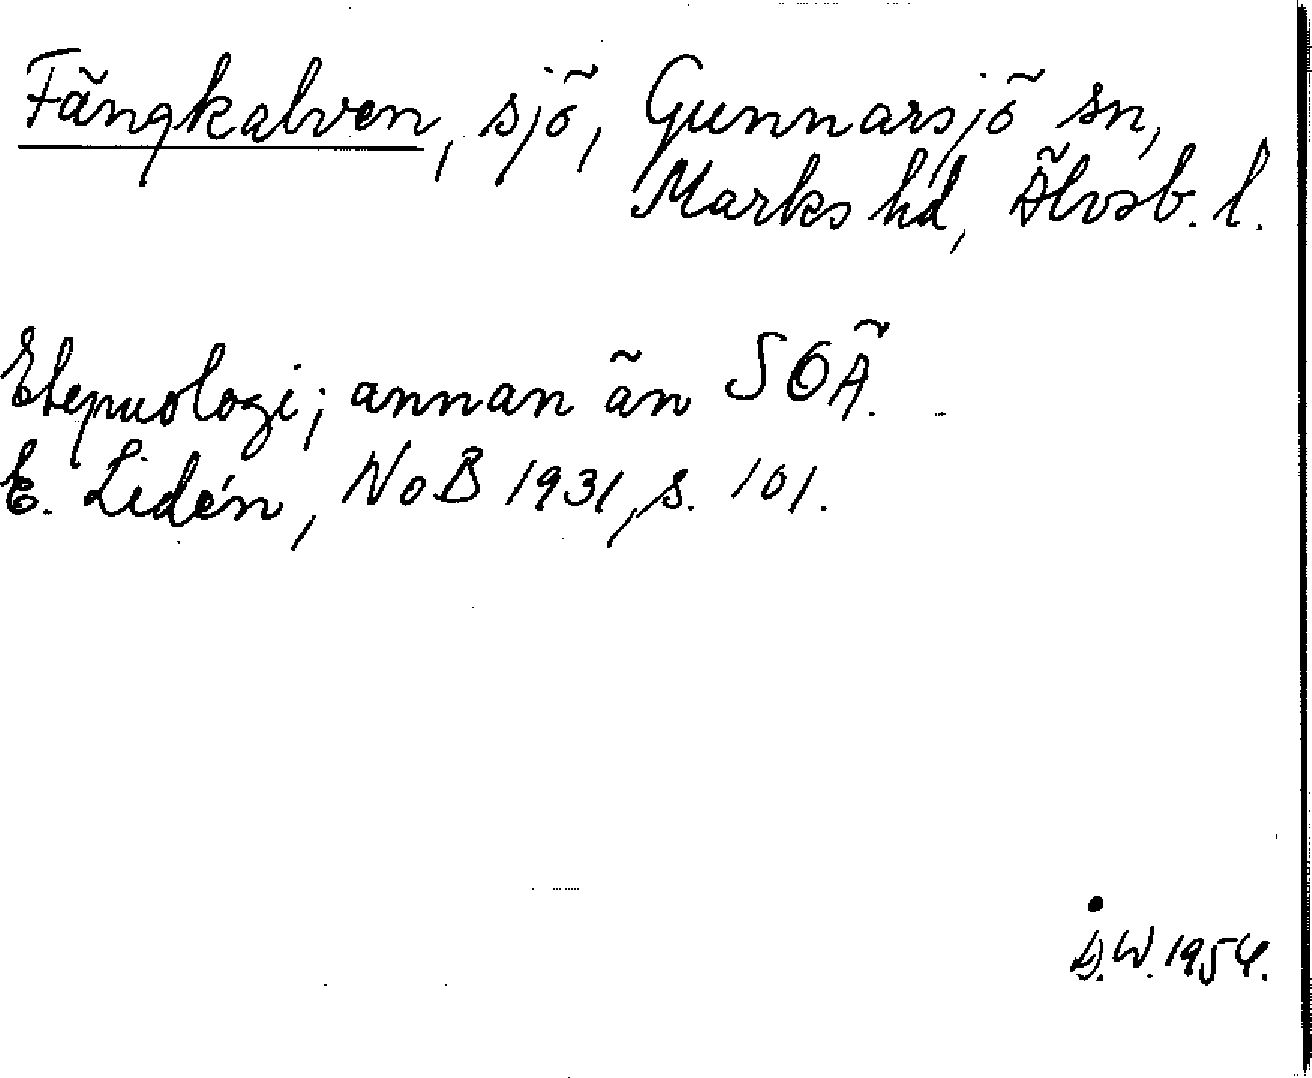 Fängkalven, sjö, Gunnarsjö sn,
Marks hd, Älvsb. l.
Etymologi; annan än SOÄ.
E. Lidén, NoB 1931, s. 101.
D.W. 1954.